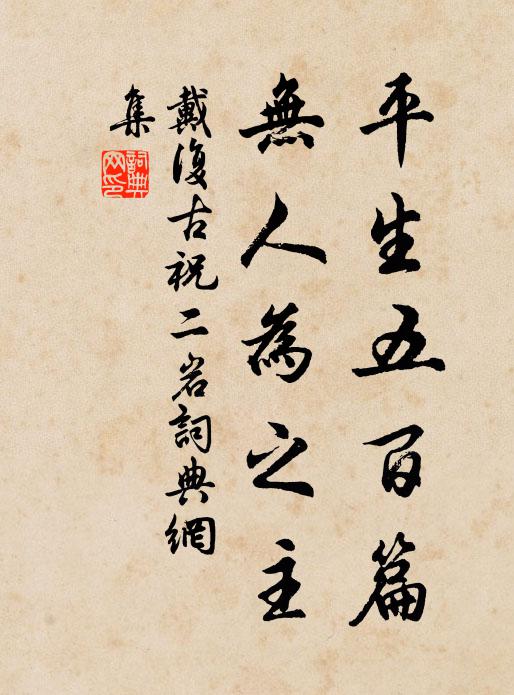 平生五百篇
無人為之主
戴復古祝二岩詞典網
集
詞典
网印